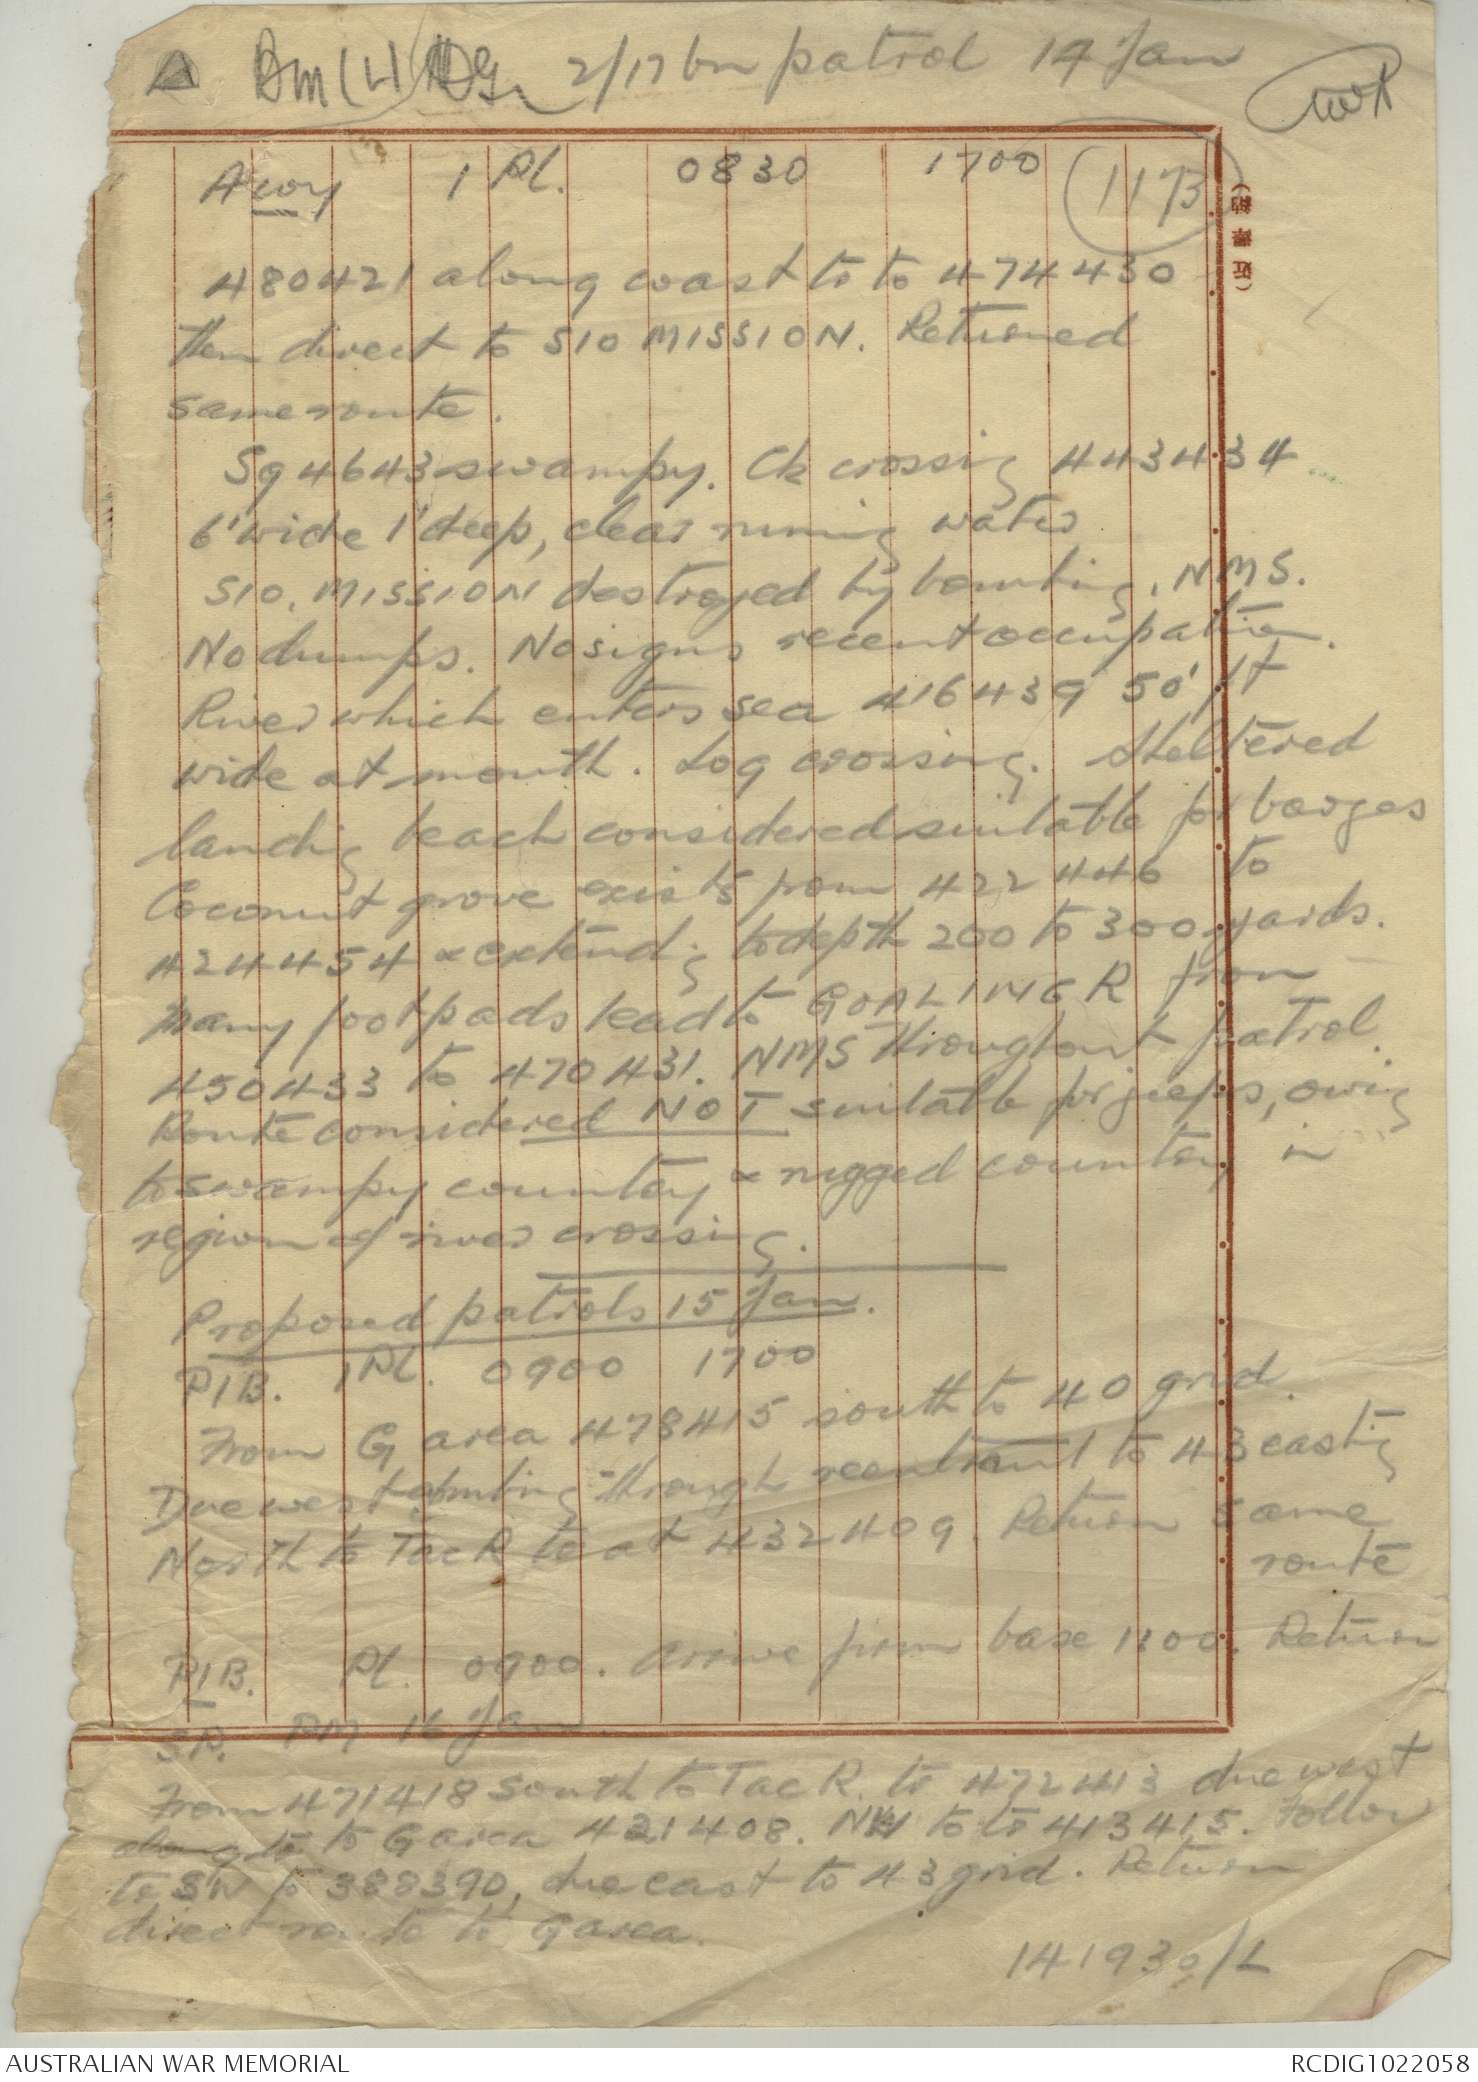 2/17 bn patrol 14 Jan
A coy 1 Pl. 0830 1700
1173
480421 along coast to to 474430
then direct to SIO MISSION. Returned
same route.
Sq 4643 swampy. Ck crossing 443434
6' wide 1' deep, clear running water
SIO. MISSION destroyed by bombing. NMS.
No dumps. No signs recent occupation.
River which enters sea 416439 50' ft
wide at mouth. Log crossing. Sheltered
landing beach considered suitable for barges
Coconut grove exists from 422446 to
424454 & extending to depth 200 to 300 yards.
Many foot pads lead to GOALING R from
450433 to 470431. NMS throughout patrol.
Route considered NOT suitable for jeeps, owing
to swampy country & rugged country in
region of river crossing.
Proposed patrols 15 Jan.
PIB. 1 Pl. 0900 1700
From G area 478415 south to 40 grid.
Due west through reentrant to 43 easting
North to Tac R at 432409. Return same
route
PIB. Pl. 0900. arrive from base 1100. Return
PM 16 Jan.
From 471418 South to Tac R. to 472413 due west
to G area 421408. NW to to 413415. Follow
to SW to 388390, due east to 43 grid. Return
direct route to G area.
141930/L
近海納
AUSTRALIAN WAR MEMORIAL
RCDIG1022058